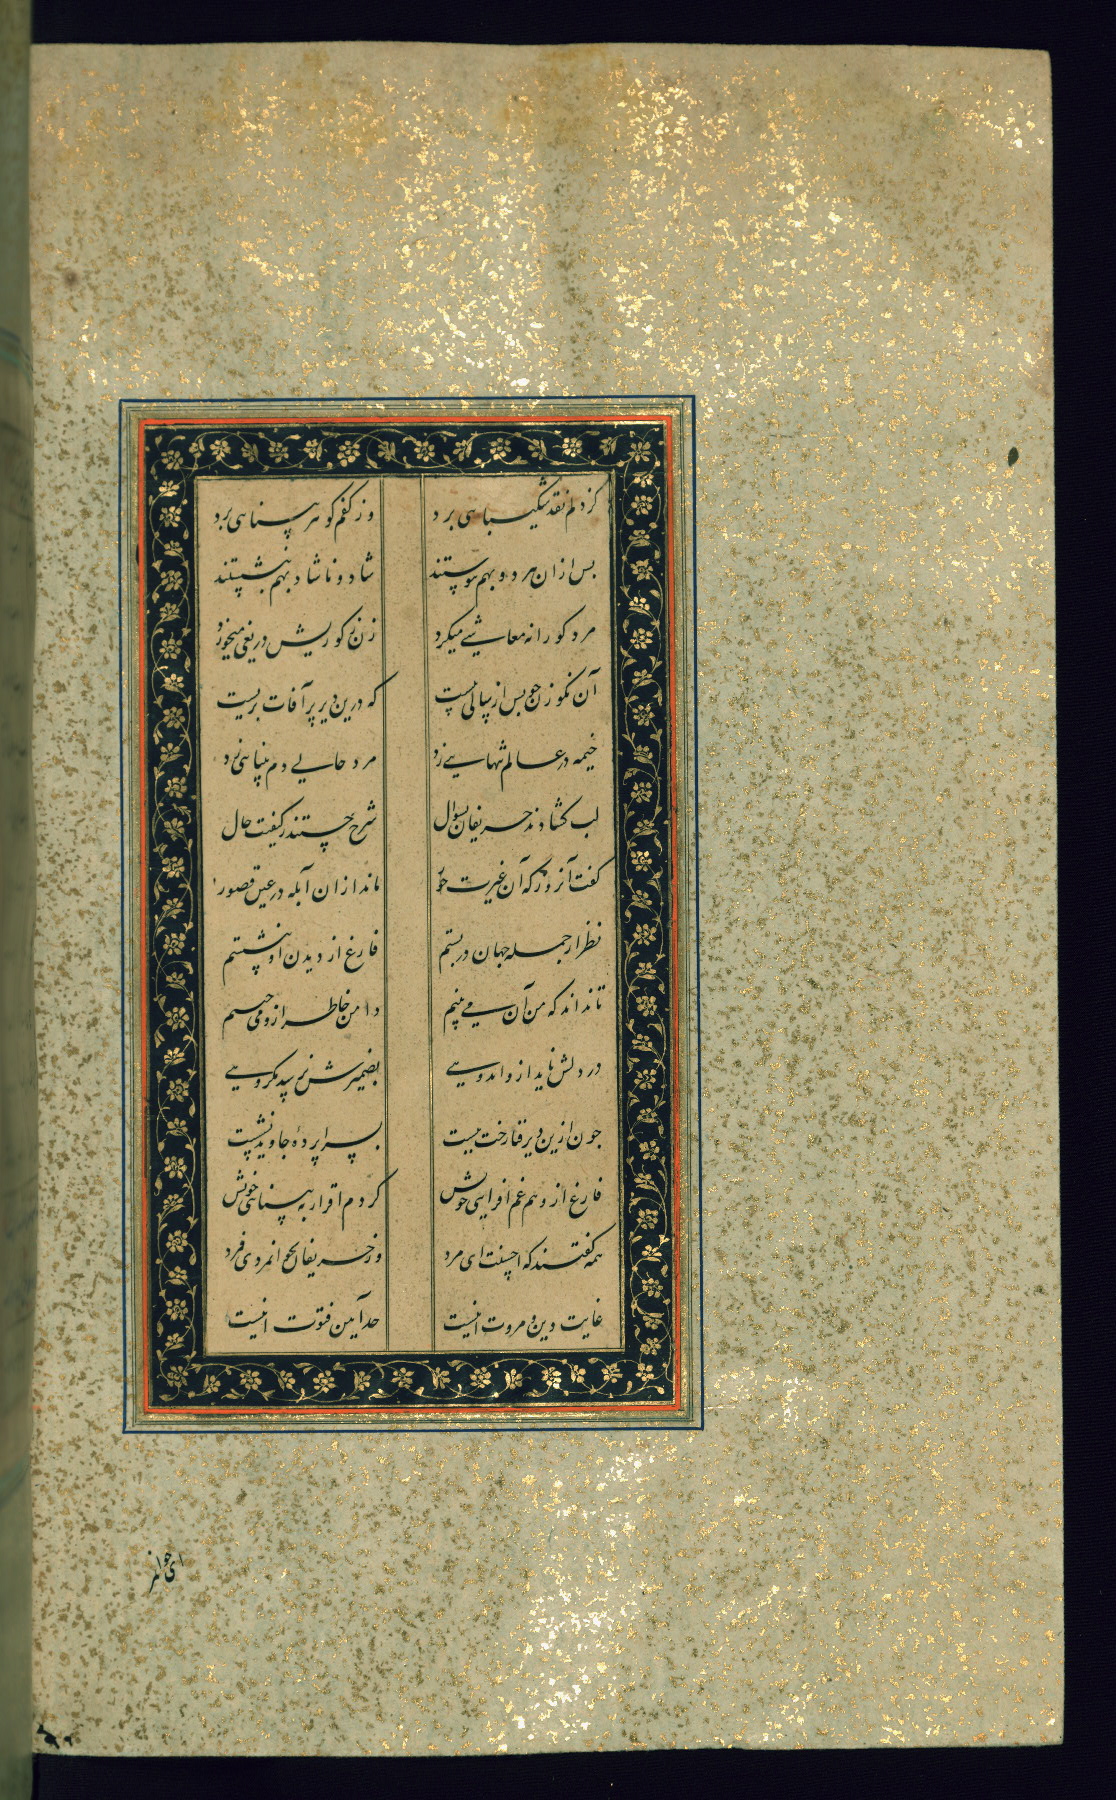 کز دلم نقد شکیبایی برد وز کفم گوهر بینایی برد
بس از ان هر دو بهم پیوستند شاد و ناشاد بهم بنشستند
مرد کورانه معاشی میکرد زن کوریش دریغی میخورد
آن نکو زن چو بس از سالی بیست که درین دیر پر آفات بزیست
خیمه در عالم تنهایی زد مرد حالی دم بینایی زد
لب کشادند حریفان بسؤال شرح جستند ز کیفیت حال
گفت آنروز که آن غیرت حور ماند از ان آبله در عین قصور
نظر از جمله جهان در بستم فارغ از دیدن او بنشستم
تا نداند که من آن می بینم دامن خاطر ازو می چینم
در دلش ناید از واندوهی بضمیرش نرسد مکروهی
چون ازین دیر فنا رخت ببست بسراپردهٔ جاوید نشست
فارغ از وهم غم افزایی خویش کردم اقرار به بینایی خویش
همه گفتند که احسنت ای مرد وز حریفان بجوانمردی فرد
غایت دین و مروت اینست حد آیین فتوت اینست
ای جوانمر